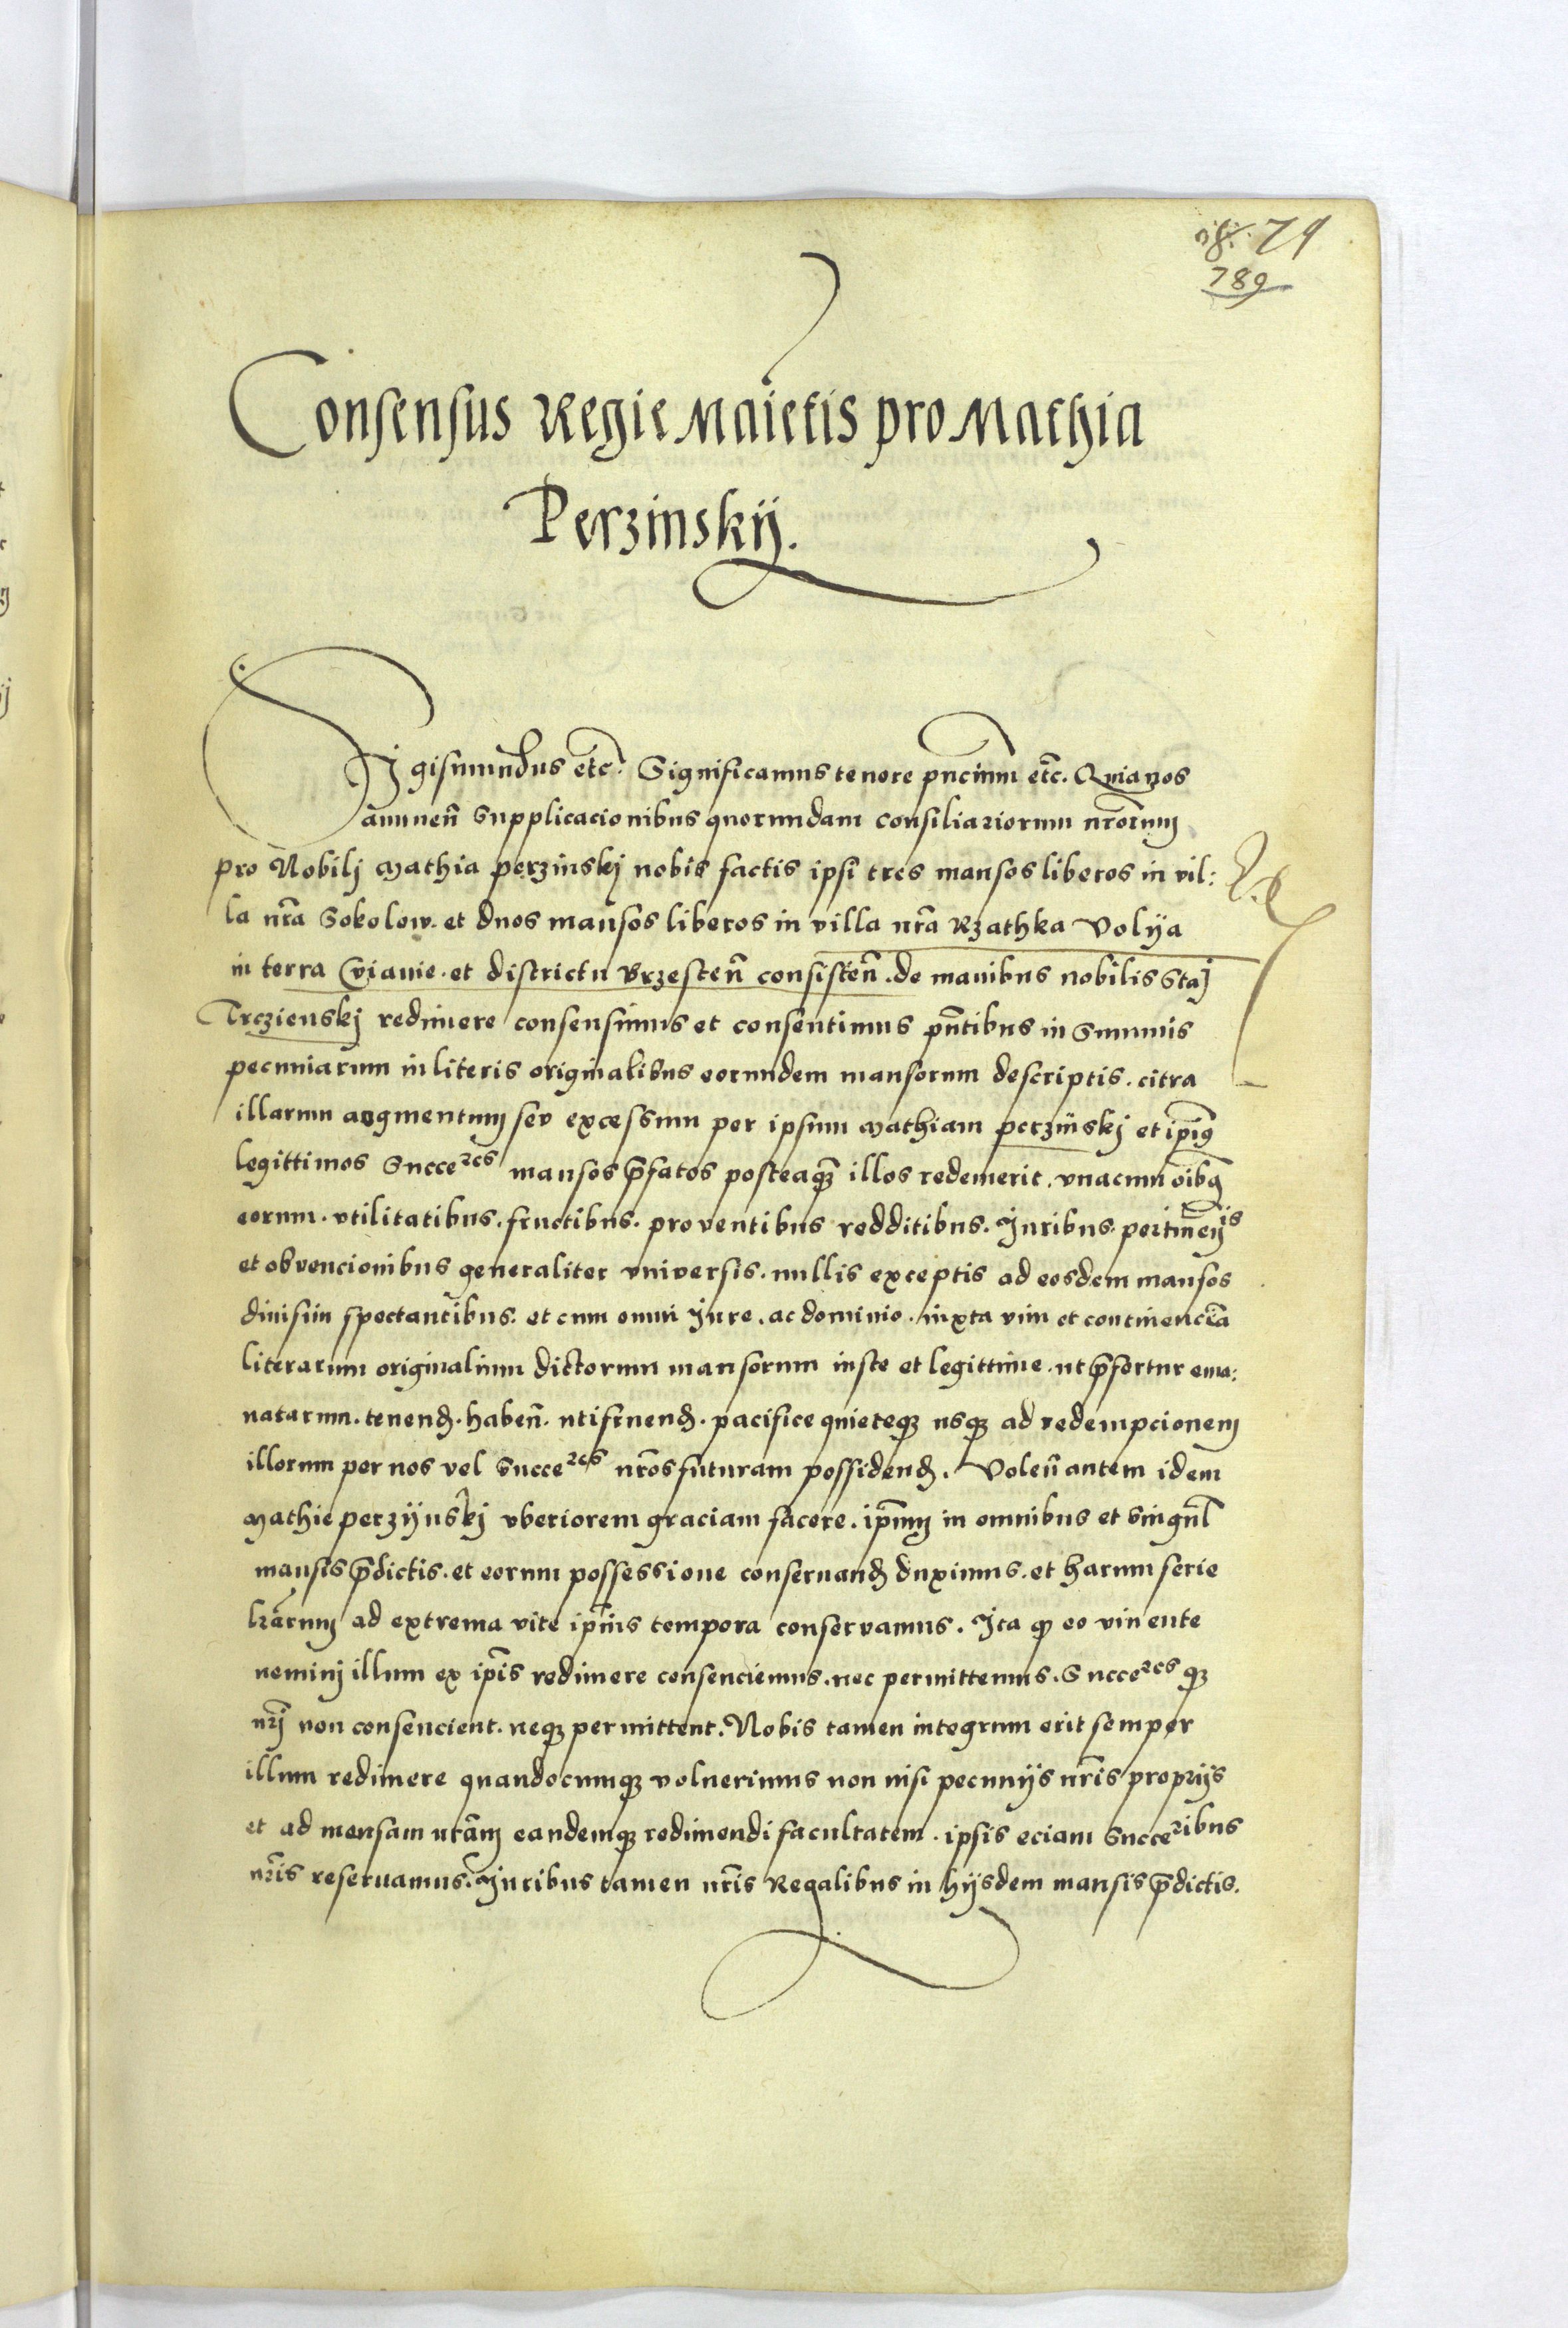 79
789
Consensus Regie Maietis pro Mathia
Perzinskÿ.
Sigismundus etc. Significamus tenore pñcium etc. Quia nos
annueñ supplicacionibus quorundam consiliariorum nrorum
pro Nobilj Mathia perzinskj nobis factis ipsi tres mansos liberos in vil:
la nra Sokolow. et duos mansos liberos in villa nra Rzathka Volÿa
in terra Cviavie. et districtu Brzesteñ consisteñ. de manibus nobilis Staj
Trczienskj redimere consensimus et consentimus pñtibus in summis
pecuniarum in literis originalibus eorundem mansorum descriptis. citra
illarum augmentum seu excessum per ipsum Mathiam perzinskj et ipius
legittimos Succeres mansos p̃fatos posteaq illos redemerit. vnacum oibq
eorum. vtilitatibus. fructibus. proventibus redditibus. Juribus. pertineñijs
et obvencionibus generaliter vniversis. nullis exceptis ad eosdem mansos
divisim spectantibus. et cum omni Jure. ac dominio. iuxta vim et continencia
literarum originalium dictorum mansorum iuste et legittime. ut p̃fertur ema:
natarum. tenend. habeñ. utifruend. pacifice quieteq usq ad redempcionem
illorum per nos vel Succeres nros futuram possidend. Voleñ autem idem
Mathie perzÿnskj vberiorem graciam facere. ipm in omnibus et singul
mansis p̃dictis. et eorum possessione conservand duximus. et harum serie
lrarum ad extrema vite ipius tempora conservamus. Ita q eo vivente
neminj illum ex ipis redimere consenciemus. nec permittemus. Succeres q
nrj non consencient. neq permittent. Nobis tamen integrum erit semper
illum redimere quandocumq voluerimus non nisi pecunijs nris proprijs
et ad mensam nram eandemq redimendi facultatem. ipsis eciam Succeribus
nris reservamus. Juribus tamen nris Regalibus in hijsdem mansis p̃dictis.